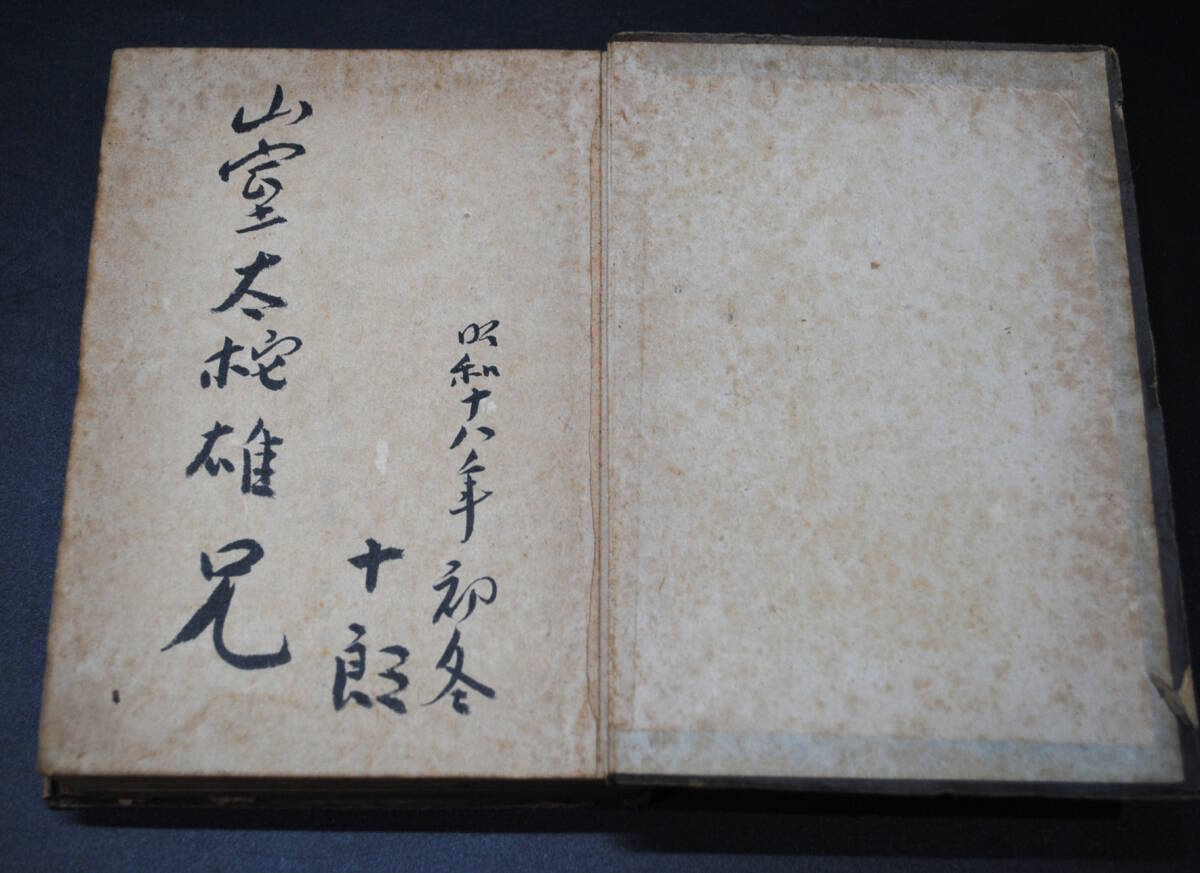 昭和十八年 初冬
十郎
山室太柁雄兄